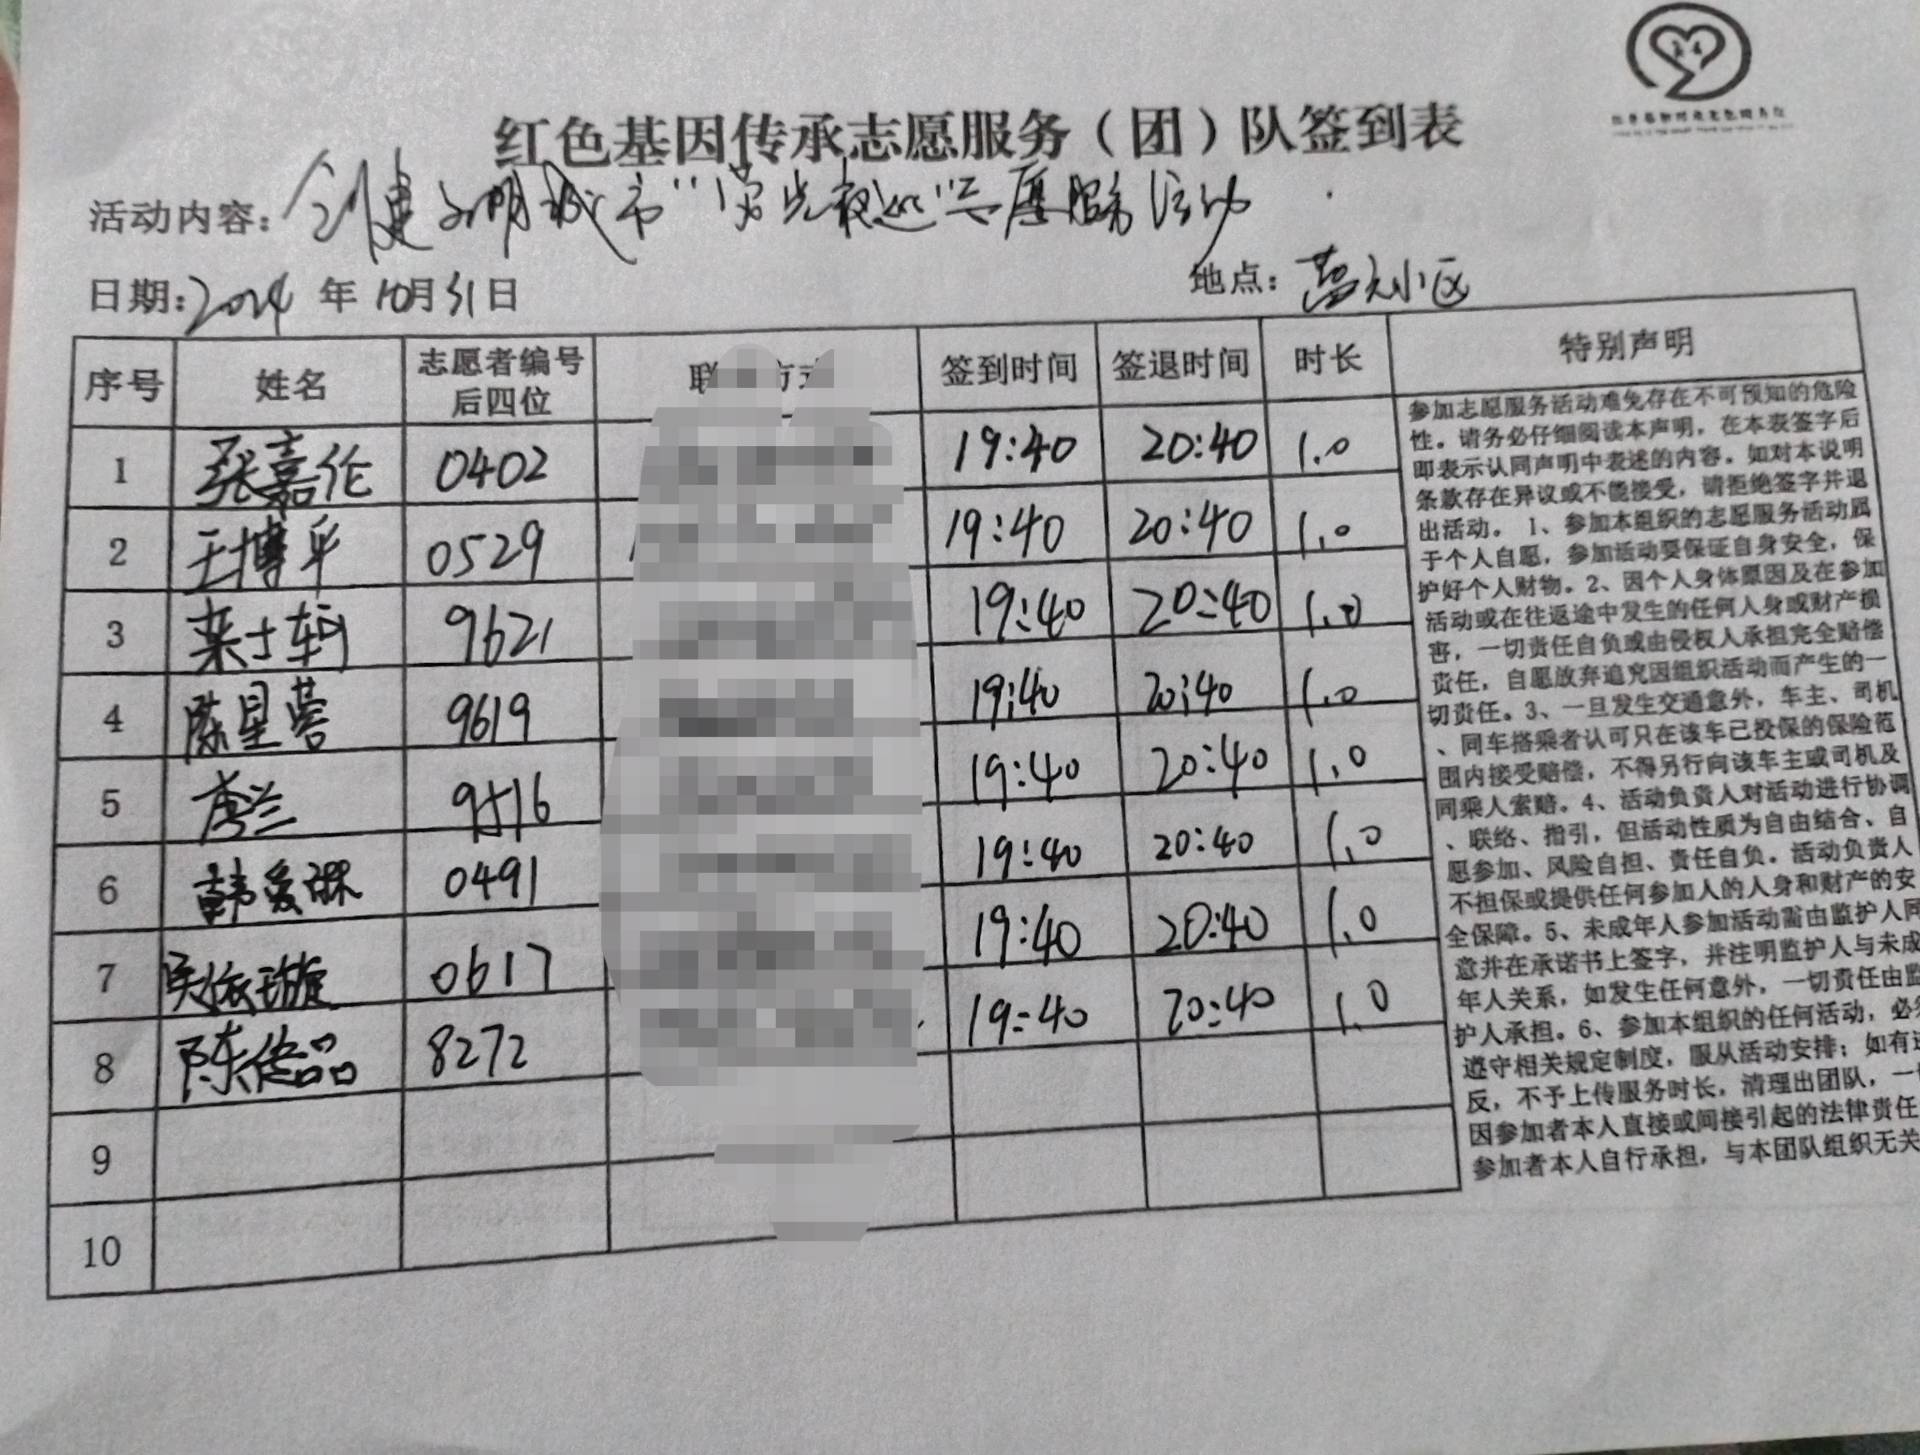 红色基因传承志愿服务（团）队签到表
活动内容：创建文明城市"党员夜巡"志愿服务活动
日期：2024年10月31日 地点：
序号 姓名 志愿者编号后四位 联 方式 签到时间 签退时间 时长 特别声明
1 张嘉伦 0402 19:40 20:40 1.0
2 王博平 0529 19:40 20:40 1.0
3 来士轲 9621 19:40 20:40 1.0
4 陈星蓉 9619 19:40 20:40 1.0
5 唐兰 9516 19:40 20:40 1.0
6 韩爱 0491 19:40 20:40 1.0
7 吴依璇 0617 19:40 20:40 1.0
8 陈俊品 8272 19:40 20:40 1.0
9
10
参加志愿服务活动难免存在不可预知的危险
性。请务必仔细阅读本声明，在本表签字后
即表示认同声明中表述的内容。如对本说明
条款存在异议或不能接受，请拒绝签字并退
出活动。 1、参加本组织的志愿服务活动属
于个人自愿，参加活动要保证自身安全，保
护好个人财物。2、因个人身体原因及在参加
活动或在往返途中发生的任何人身或财产损
害，一切责任自负或由侵权人承担完全赔偿
责任，自愿放弃追究因组织活动而产生的一
切责任。3、一旦发生交通意外，车主、司机
、同车搭乘者认可只在该车已投保的保险范
围内接受赔偿，不得另行向该车主或司机及
同乘人索赔。4、活动负责人对活动进行协调
、联络、指引，但活动性质为自由结合、自
愿参加、风险自担、责任自负。活动负责人
不担保或提供任何参加人的人身和财产的安
全保障。5、未成年人参加活动需由监护人同
意并在承诺书上签字，并注明监护人与未成
年人关系，如发生任何意外，一切责任由监
护人承担。6、参加本组织的任何活动，必须
遵守相关规定制度，服从活动安排；如有违
反，不予上传服务时长，清理出团队，一切
因参加者本人直接或间接引起的法律责任
参加者本人自行承担，与本团队组织无关